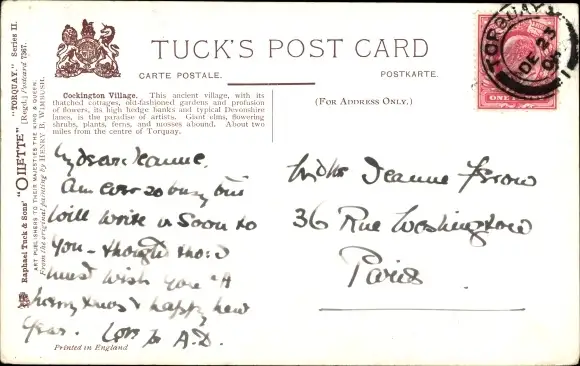 TUCK'S POST CARD
CARTE POSTALE.
POSTKARTE.
Cockington Village. This ancient village, with its
thatched cottages, old-fashioned gardens and profusion
of flowers, its high hedge banks and typical Devonshire
lanes, is the paradise of artists. Giant elms, flowering
shrubs, plants, ferns, and mosses abound. About two
miles from the centre of Torquay.
(FOR ADDRESS ONLY.)
Raphael Tuck & Sons' "OILETTE" "TORQUAY." Series II.
[Regd.] Postcard 7367.
ART PUBLISHERS TO THEIR MAJESTIES THE KING & QUEEN.
From the original painting by HENRY B. WIMBUSH.
My dear Jeanne.
Am ever so busy but
will write u soon to
you - though
must wish you "A
merry Xmas & happy new
year. Love A.D.
Printed in England
Jeanne Brow
36 Rue Washington
Paris
TORQUAY
DE 23